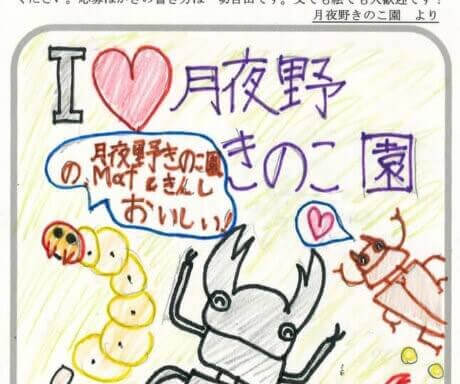 ください。応募はがきの書き方は一切自由です。文でも絵でも大歓迎です！
月夜野きのこ園　より
I ♥ 月夜野
きのこ園
月夜野きのこ園
の、Mat&きんし
おいしい!!